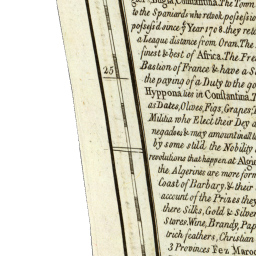 Bugia, Constantina. The Town
to the Spaniards who retook possession
possess'd since yͤ Year 1708. they ret
a League distance from Oran. The
finest & best of Africa. The Fre
Bastion of France & have a S
the paying of a Duty to the go
Hyppona lies in Constantina. T
as Dates, Olives, Figs, Grapes, T
Militia who Elect their Dey a
negadoes & may amount in all to
by some stild the Nobility
revolutions that happen at Algi
the Algerines are more form
Coast of Barbary. & their
account of the Prizes they
there Silks, Gold & Silver
Stores. Wine, Brandy, Pap
trich feathers, Christian
3 Provinces Fez Maroc
25